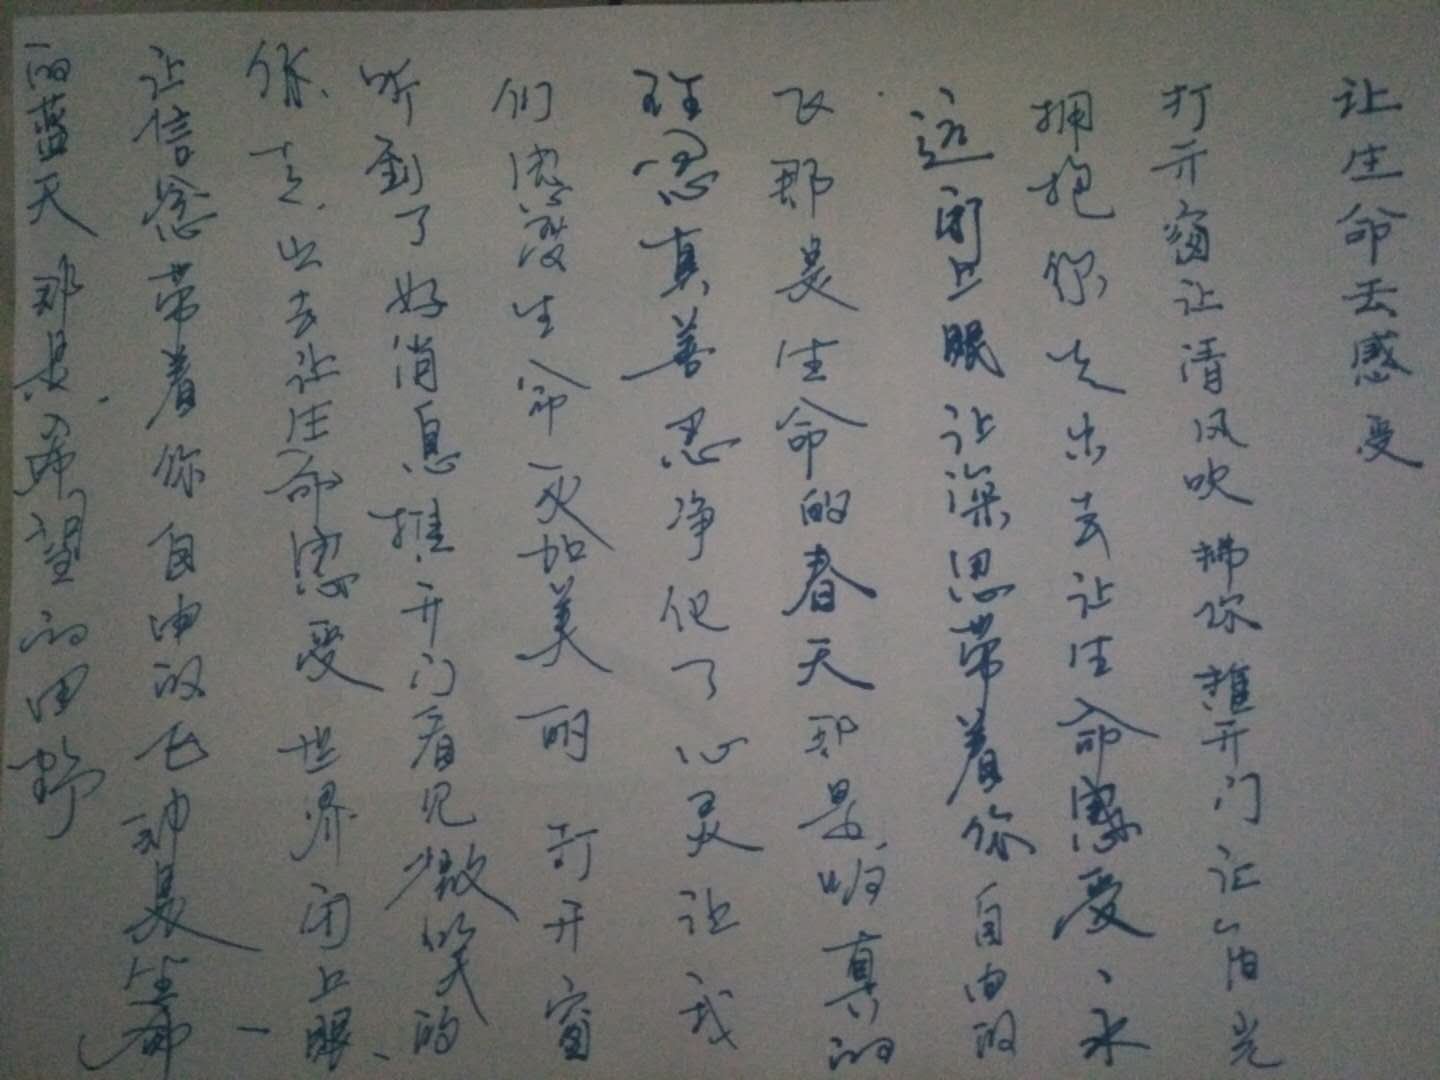 让生命去感受
打开窗让清风吹拂你推开门让阳光
拥抱你走出去让生命感受永
远闭上眼让深思带着你自由的
飞那是生命的春天那是归真的
理念真善忍净化了心灵让我
们感受生命更加美丽打开窗
听到了好消息推开门看见微笑的
你走出去让生命感受世界闭上眼
让信念带着你自由的飞那是
的蓝天那是希望的田野